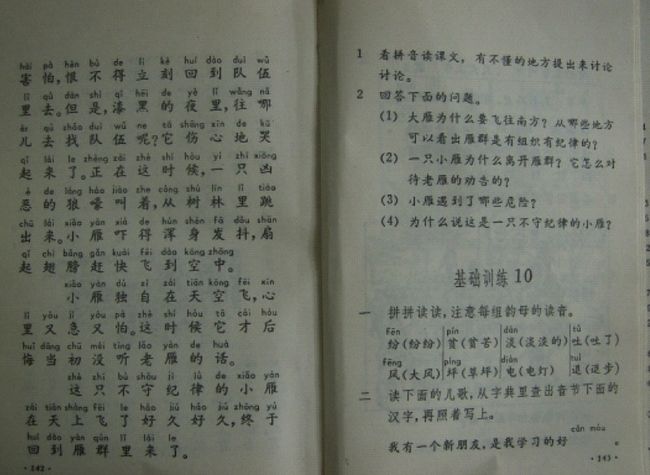 hài pà hèn bù de lì kè huí dào duì wǔ
害怕,恨不得立刻回到队伍
lǐ qù dàn shì qī hēi de yè lǐ wǎng nǎ
里去。但是,漆黑的夜里,往哪
ér qù zhǎo duì wǔ ne tā shāng xīn de kū
儿去找队伍呢?它伤心地哭
qǐ lái le zhèng zài zhè shí hòu yì zhī xiōng
起来了。正在这时候,一只凶
è de láng háo jiào zhe cóng shù lín lǐ tiào
恶的狼嚎叫着,从树林里跳
chū lái xiǎo yàn xià de hún shēn fā dǒu shān
出来。小雁吓得浑身发抖,扇
qǐ chì bǎng gǎn kuài fēi dào kōng zhōng
起翅膀赶快飞到空中。
xiǎo yàn dú zì zài tiān kōng fēi xīn
小雁独自在天空飞,心
lǐ yòu jí yòu pà zhè shí hòu tā cái hòu
里又急又怕。这时候它才后
huǐ dāng chū méi tīng lǎo yàn de huà
悔当初没听老雁的话。
zhè zhī bù shǒu jì lǜ de xiǎo yàn
这只不守纪律的小雁
zài tiān shàng fēi le hǎo jiǔ hǎo jiǔ zhōng yú
在天上飞了好久好久,终于
huí dào yàn qún lǐ lái le
回到雁群里来了。
·142·
1 看拼音读课文,有不懂的地方提出来讨论
讨论。
2 回答下面的问题。
(1) 大雁为什么要飞往南方?从哪些地方
可以看出雁群是有组织有纪律的?
(2) 一只小雁为什么离开雁群?它怎么对
待老雁的劝告的?
(3) 小雁遇到了哪些危险?
(4) 为什么说这是一只不守纪律的小雁?
基础训练10
一 拼拼读读,注意每组韵母的读音。
fēn pín dàn tǔ
纷(纷纷) 贫(贫苦) 淡(淡淡的) 吐(吐了)
fēng píng diàn tuì
风(大风) 坪(草坪) 电(电灯) 退(退步)
二 读下面的儿歌,从字典里查出音节下面的
汉字,再照着写上。
cān móu
我有一个新朋友,是我学习的好 。
·143·